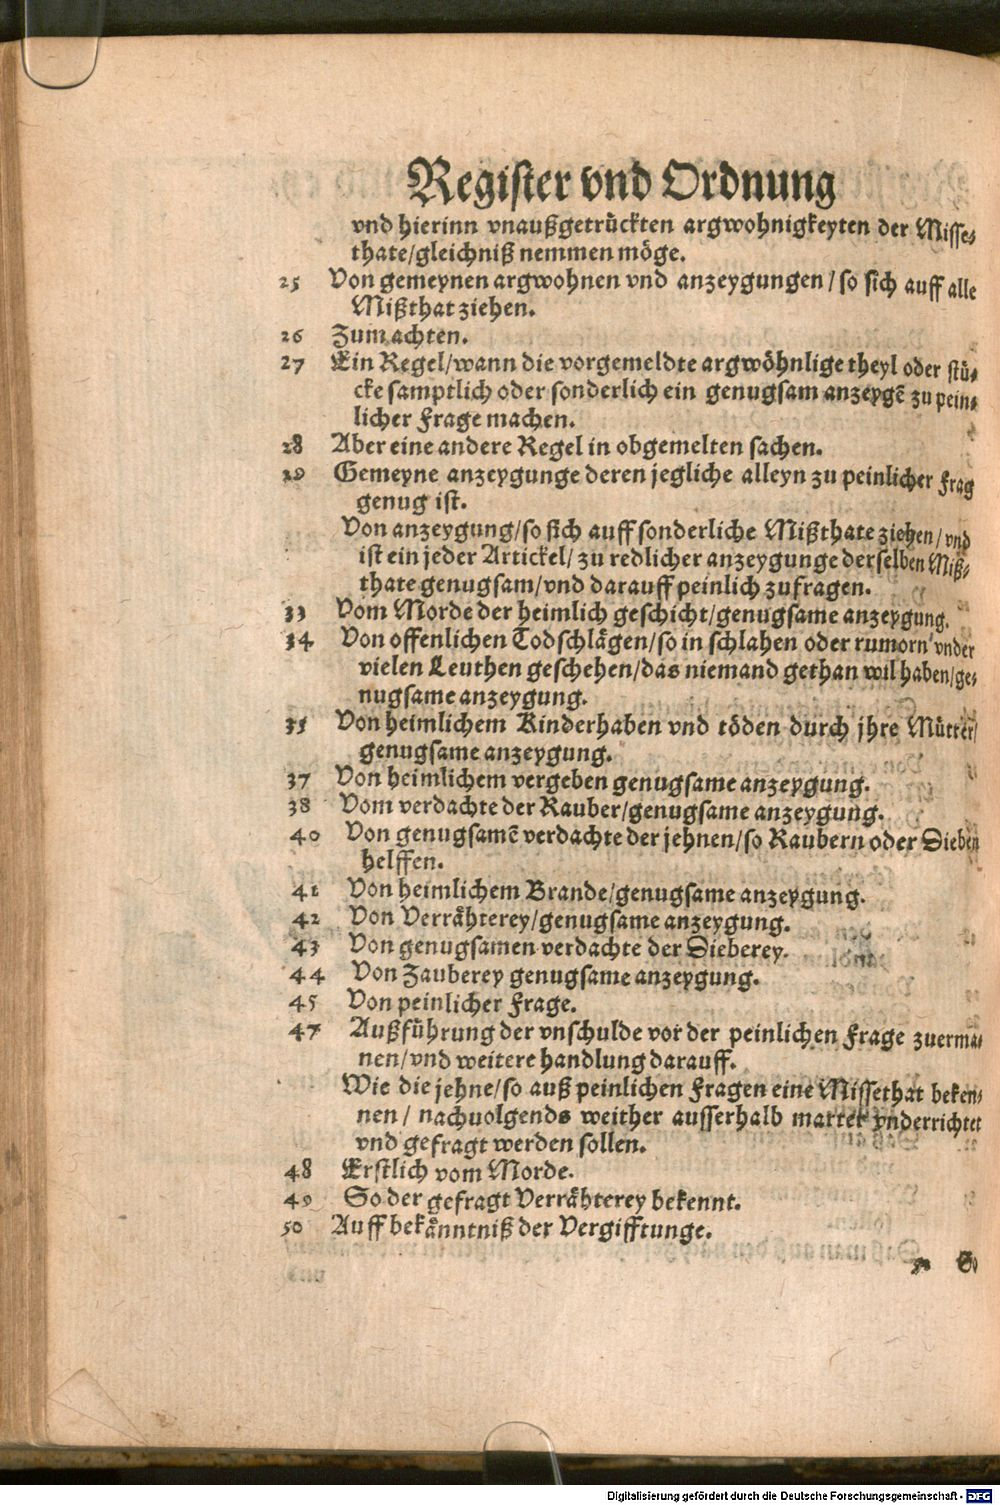 Register vnd Ordnung
vnd hierinn vnaußgetrückten argwohnigkeyten der Misse-
thate/gleichniß nemmen möge.
25 Von gemeynen argwohnen vnd anzeygungen/so sich auff alle
Mißthat ziehen.
26 Zum achten.
27 Ein Regel/wann die vorgemeldte argwöhnlige theyl oder stü-
cke samptlich oder sonderlich ein genugsam anzeygẽ zu pein-
licher Frage machen.
28 Aber eine andere Regel in obgemelten sachen.
29 Gemeyne anzeygunge deren jegliche alleyn zu peinlicher Frag
genug ist.
Von anzeygung/so sich auff sonderliche Mißthate ziehen/vnd
ist ein jeder Artickel/zu redlicher anzeygunge derselben Miß-
thate genugsam/vnd darauff peinlich zufragen.
33 Vom Morde der heimlich geschicht/genugsame anzeygung.
34 Von offenlichen Todschlägen/so in schlahen oder rumorn vnder
vielen Leuthen geschehen/das niemand gethan wil haben/ge-
nugsame anzeygung.
35 Von heimlichem Kinderhaben vnd töden durch jhre Mütter/
genugsame anzeygung.
37 Von heimlichem vergeben genugsame anzeygung.
38 Vom verdachte der Rauber/genugsame anzeygung.
40 Von genugsamẽ verdachte der jehnen/so Raubern oder Dieben
helffen.
41 Von heimlichem Brande/genugsame anzeygung.
42 Von Verrähterey/genugsame anzeygung.
43 Von genugsamen verdachte der Dieberey.
44 Von Zauberey genugsame anzeygung.
45 Von peinlicher Frage.
47 Außführung der vnschulde vor der peinlichen Frage zuerma-
nen/vnd weitere handlung darauff.
Wie die jehne/so auß peinlichen Fragen eine Missethat beken-
nen/ nachuolgends weither ausserhalb marter vnderrichtet
vnd gefragt werden sollen.
48 Erstlich vom Morde.
49 So der gefragt Verrähterey bekennt.
50 Auff bekänntniß der Vergifftunge.
So
Digitalisierung gefördert durch die Deutsche Forschungsgemeinschaft - DFG